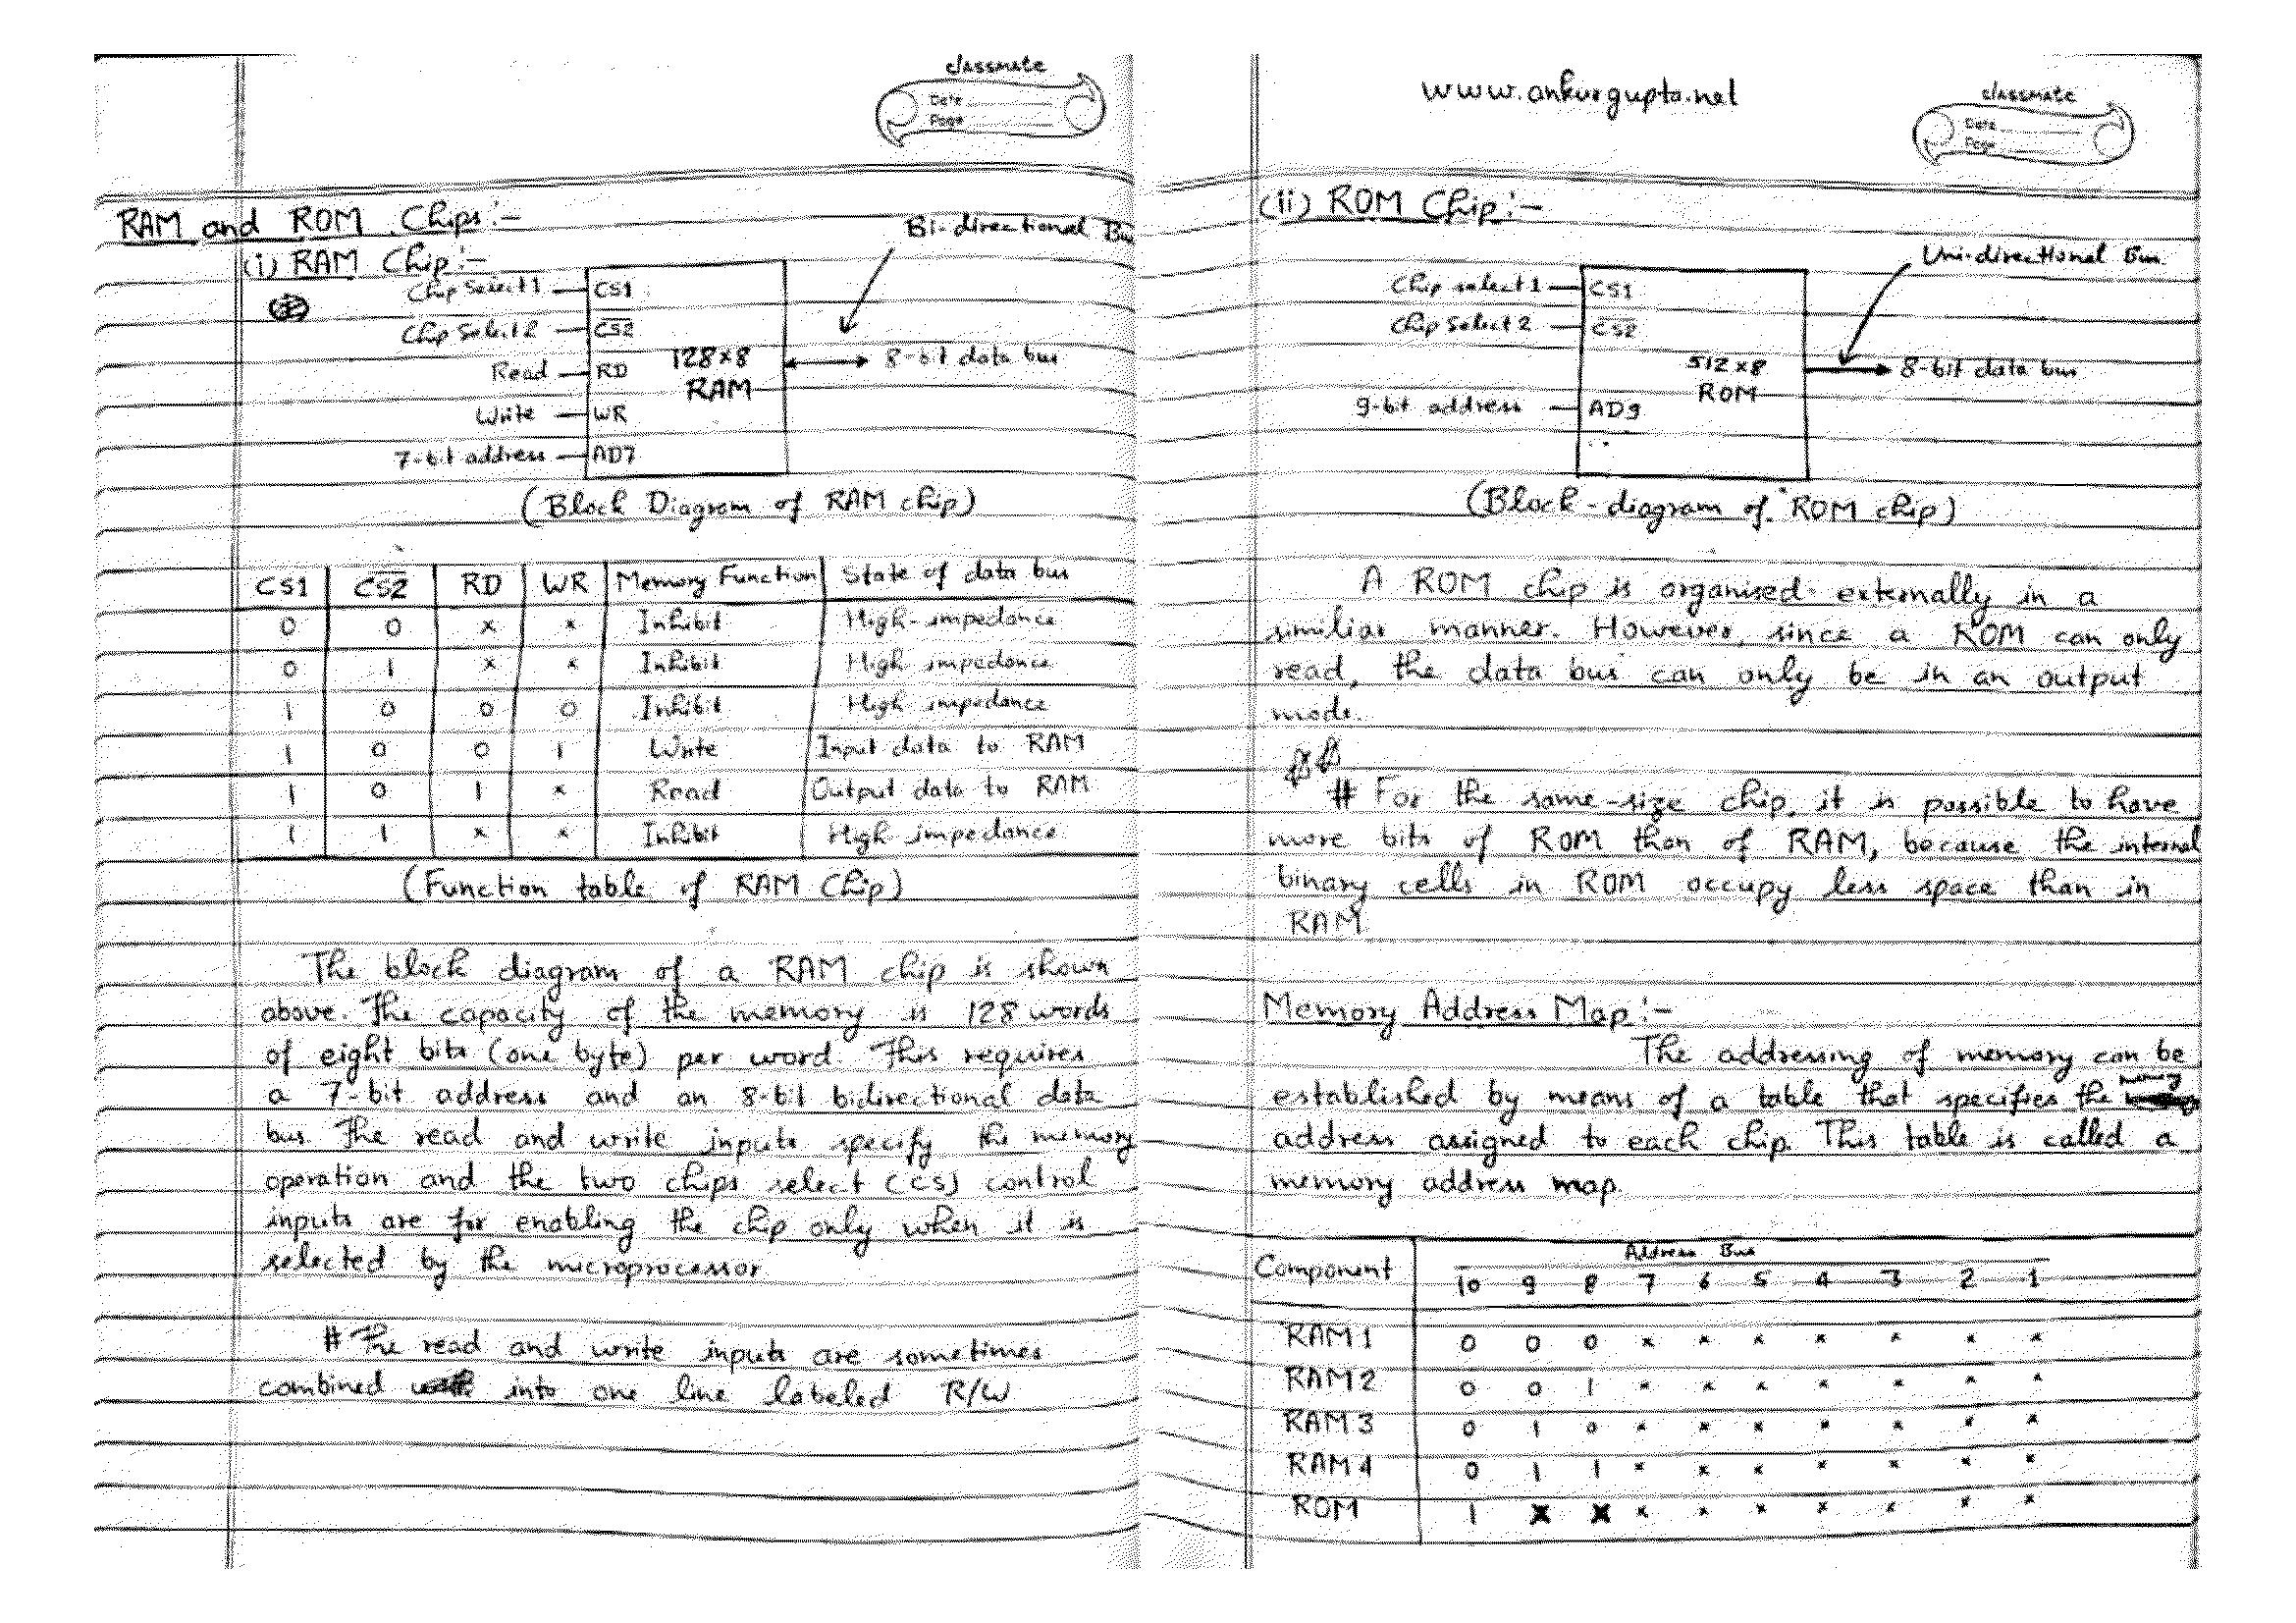 classmate
Date
Page
RAM and ROM Chips :-
(i) RAM Chip :-
Bi-directional Bus
Chip Select 1
CS1
Chip Select 2
C̅S̅2̅
Read
RD
128×8
RAM
8-bit data bus
Write
WR
7-bit address
AD7
(Block Diagram of RAM chip)
CS1 C̅S̅2̅ RD WR Memory Function State of data bus
0 0 x x Inhibit High-impedance
0 1 x x Inhibit High impedance
1 0 0 0 Inhibit High impedance
1 0 0 1 Write Input data to RAM
1 0 1 x Read Output data to RAM
1 1 x x Inhibit High impedance
(Function table of RAM Chip)
The block diagram of a RAM chip is shown
above. The capacity of the memory is 128 words
of eight bits (one byte) per word. This requires
a 7-bit address and an 8-bit bidirectional data
bus. The read and write inputs specify the memory
operation and the two chips select (CS) control
inputs are for enabling the chip only when it is
selected by the microprocessor.
# The read and write inputs are sometimes
combined into one line labeled R/W
www.ankurgupta.net
classmate
Date
Page
(ii) ROM Chip :-
Uni-directional Bus
Chip select 1
CS1
Chip Select 2
C̅S̅2̅
512×8
ROM
8-bit data bus
9-bit address
AD9
(Block-diagram of ROM chip)
A ROM chip is organised externally in a
similiar manner. However, since a ROM can only
read, the data bus can only be in an output
mode.
# For the same-size chip, it is possible to have
more bits of ROM than of RAM, because the internal
binary cells in ROM occupy less space than in
RAM
Memory Address Map :-
The addressing of memory can be
established by means of a table that specifies the memory
address assigned to each chip. This table is called a
memory address map.
Component Address Bus
10 9 8 7 6 5 4 3 2 1
RAM 1 0 0 0 x x x x x x x
RAM 2 0 0 1 x x x x x x x
RAM 3 0 1 0 x x x x x x x
RAM 4 0 1 1 x x x x x x x
ROM 1 x x x x x x x x x